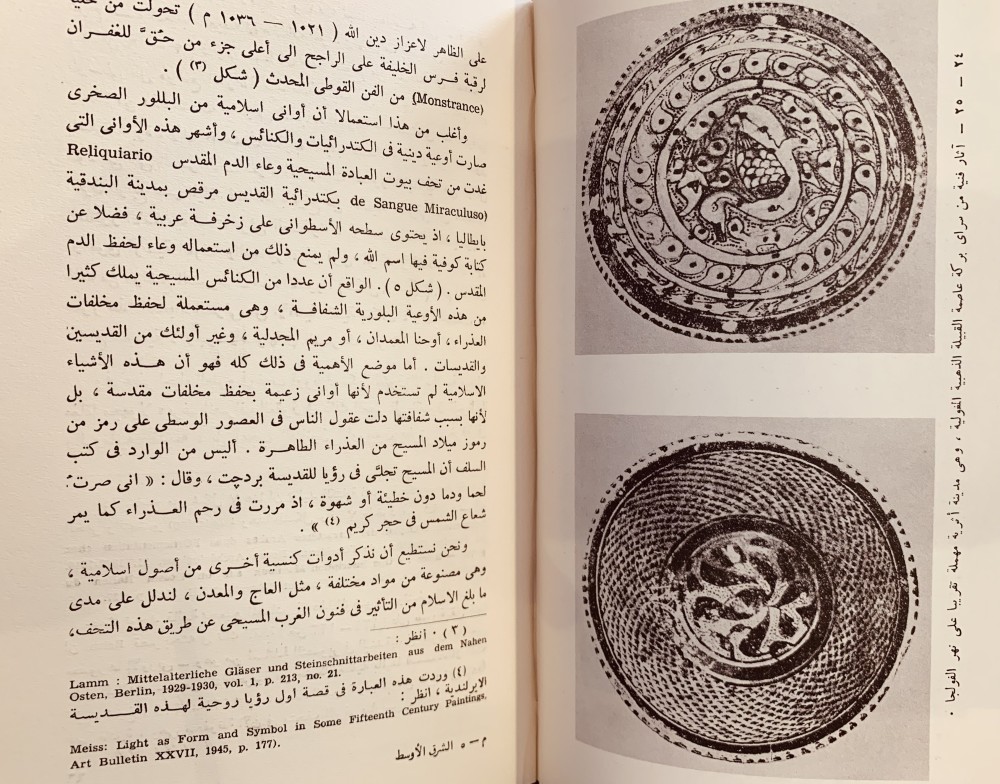 على الظاهر لاعزاز دين الله ( ١٠٢١ — ١٠٣٦ م ) تحولت من
لرقبة فرس الخليفة على الراجح الى أعلى جزء من حُقّ للغفران
(Monstrance) من الفن القوطى المحدث ( شكل (٣) ) .
وأغلب من هذا استعمالا أن أوانى اسلامية من البللور الصخرى
صارت أوعية دينية فى الكتدرائيات والكنائس ، وأشهر هذه الأوانى التى
غدت من تحف بيوت العبادة المسيحية وعاء الدم المقدس Reliquiario
de Sangue Miraculuso) بكتدرائية القديس مرقص بمدينة البندقية
بايطاليا ، اذ يحتوى سطحه الأسطوانى على زخرفة عربية ، فضلا عن
كتابة كوفية فيها اسم الله ، ولم يمنع ذلك من استعماله وعاء لحفظ الدم
المقدس . ( شكل ٥ ) . الواقع أن عددا من الكنائس المسيحية يملك كثيرا
من هذه الأوعية البلورية الشفافة ، وهى مستعملة لحفظ مخلفات
العذراء ، أوحنا المعمدان ، أو مريم المجدلية ، وغير أولئك من القديسين
والقديسات . أما موضع الأهمية فى ذلك كله فهو أن هذه الأشياء
الاسلامية لم تستخدم لأنها أوانى زعيمة بحفظ مخلفات مقدسة ، بل
لأنها بسبب شفافتها دلت عقول الناس فى العصور الوسطى على رمز من
رموز ميلاد المسيح من العذراء الطاهرة . أليس من الوارد فى كتب
السلف أن المسيح تجلّى فى رؤيا للقديسة بردچت ، وقال : « انى صرت
لحما ودما دون خطيئة أو شهوة ، اذ مررت فى رحم العذراء كما يمر
شعاع الشمس فى حجر كريم (٤) » .
ونحن نستطيع أن نذكر أدوات كنسية أخرى من أصول اسلامية ،
وهى مصنوعة من مواد مختلفة ، مثل العاج والمعدن ، لندلل على مدى
ما بلغ الاسلام من التأثير فى فنون الغرب المسيحى عن طريق هذه التحف،
(٣) أنظر :
Lamm : Mittelalterliche Gläser und Steinschnittarbeiten aus dem Nahen
Osten, Berlin, 1929-1930, vol. 1, p. 213, no. 21.
(٤) وردت هذه العبارة فى قصة اول رؤيا روحية لهذه القديسة
الايرلندية ، انظر :
Meiss: Light as Form and Symbol in Some Fifteenth Century Paintings,
Art Bulletin XXVII, 1945, p. 177).
م — ٥ الشرق الأوسط
٢٤ — ٢٥ — آثار فنية من سراى بركة عاصمة القبيلة الذهبية المغولية ، وهى مدينة أثرية مهملة تقريبا على نهر الفولجا .